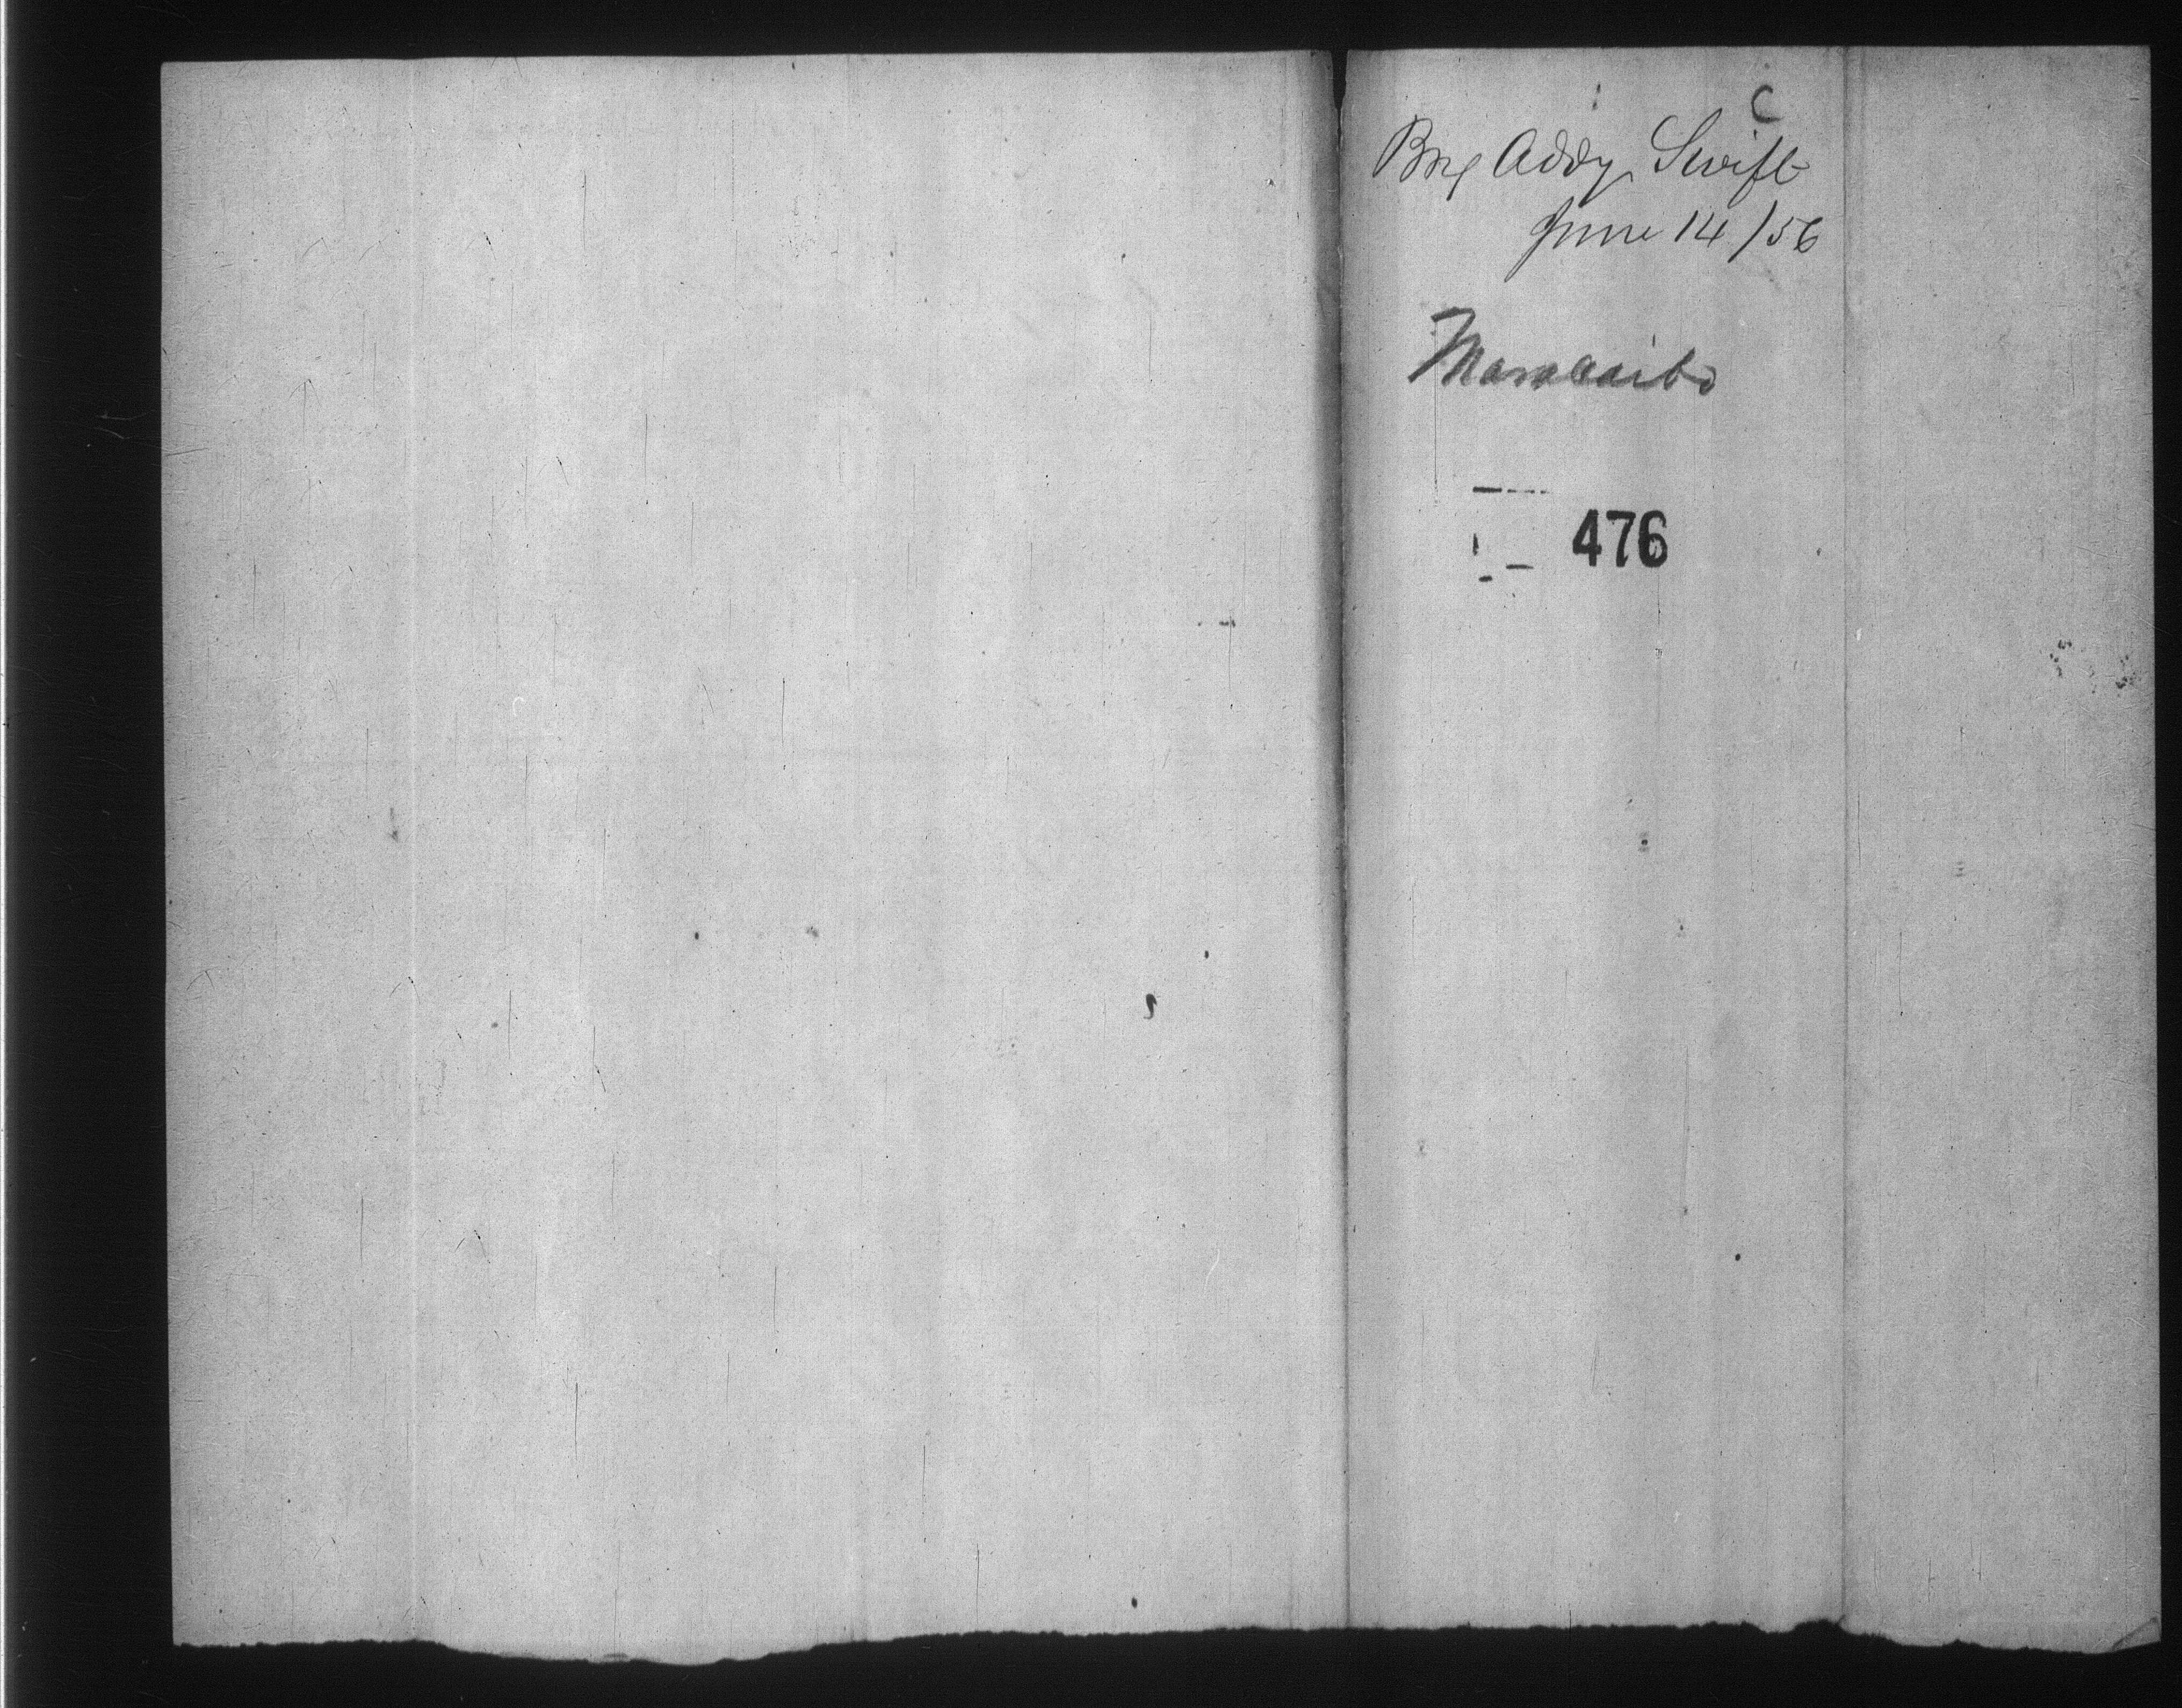 C
Brig Addy Swift
June 14/56
Maracaibo
476